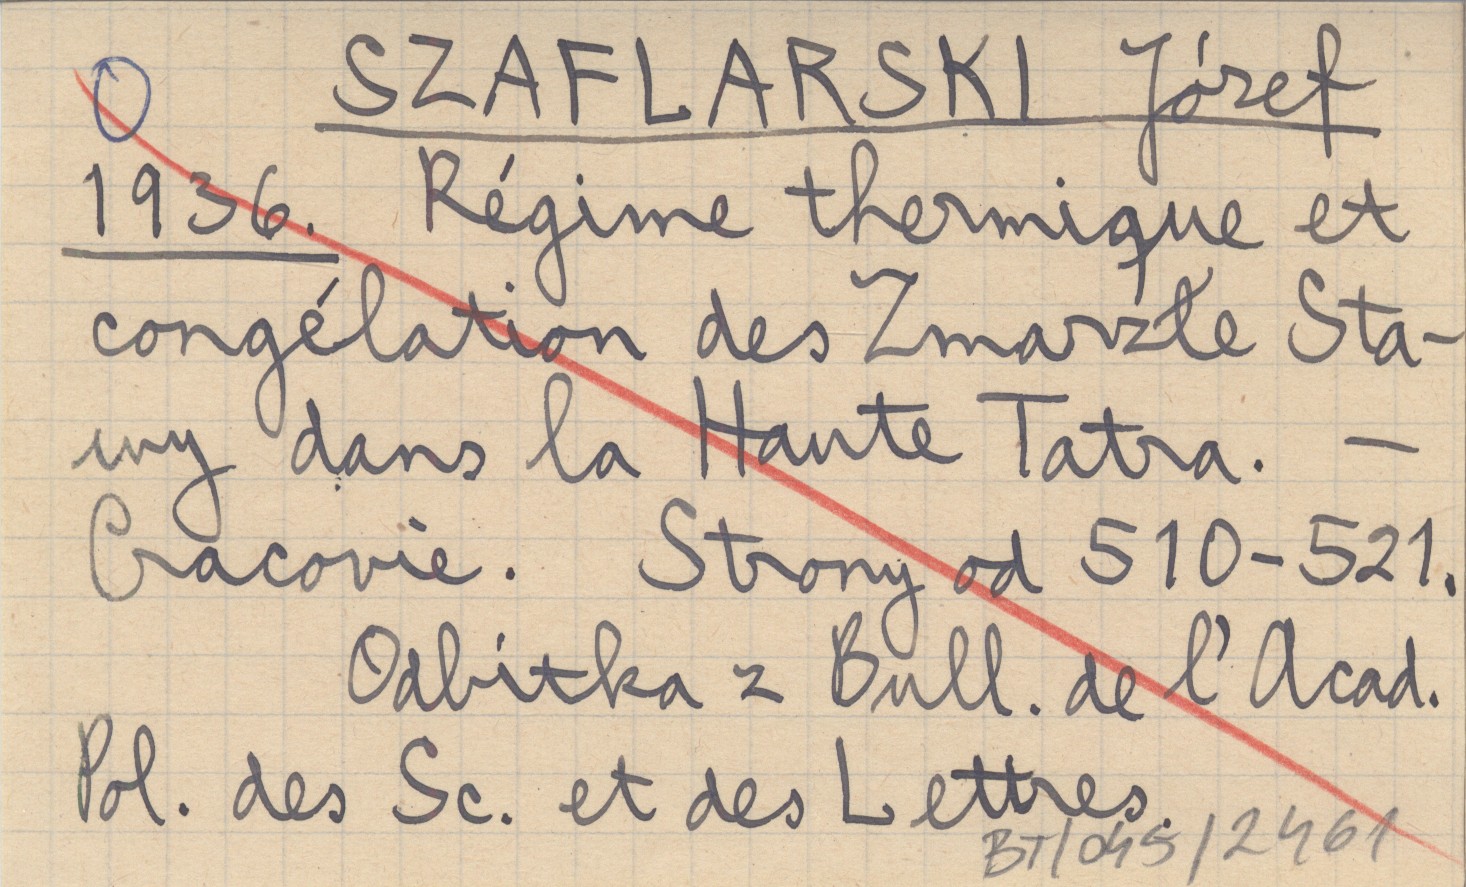 SZAFLARSKI Józef
1936. Régime thermique et
congélation des Zmarzłe Sta-
wy dans la Haute Tatra. —
Cracovie. Strony od 510-521.
Odbitka z Bull. de l'Acad.
Pol. des Sc. et des Lettres.
BT/045/2461